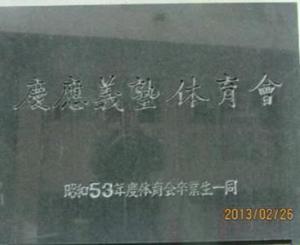 慶應義塾体育會
昭和53年度体育会卒業生一同
2013/02/26